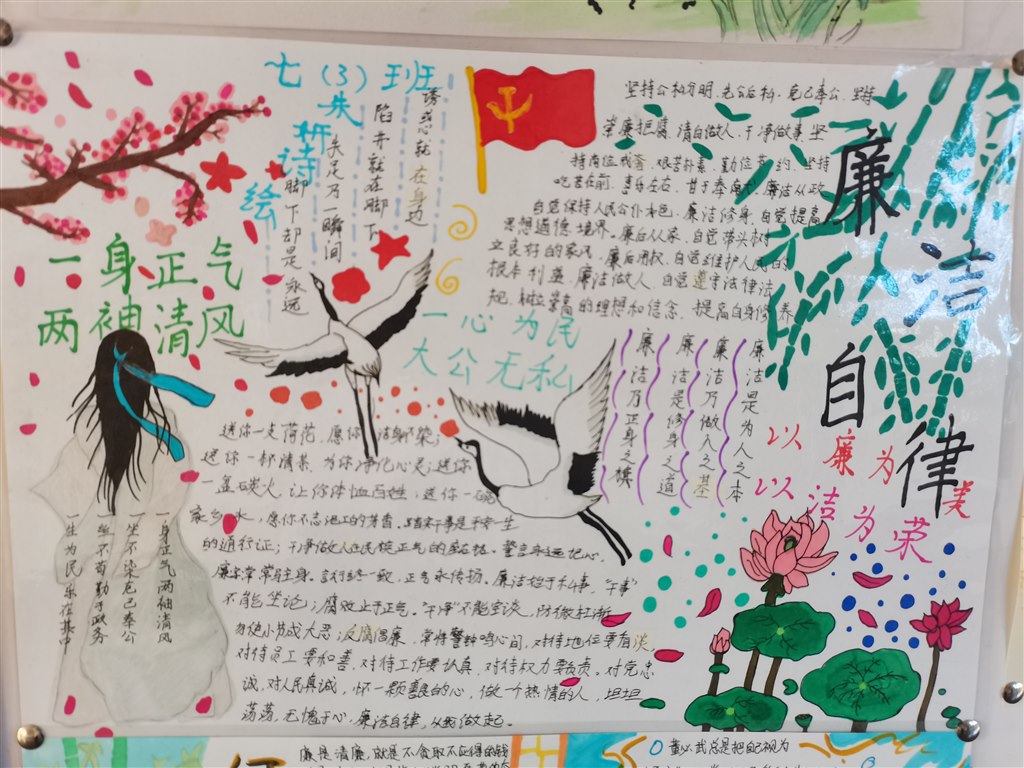 七（3）班
朱妍诗
绘
诱惑就在身边
陷井就在脚下
失足乃一瞬间
脚下却是永远
坚持公私分明，先公后私，克己奉公，坚持
崇廉拒腐，清白做人，干净做事，坚
持尚俭戒奢，艰苦朴素，勤俭节约，坚持
吃苦在前，享乐在后，甘于奉献。廉洁从政
自觉保持人民公仆本色，廉洁修身，自觉提高
思想道德境界。廉洁从家，自觉带头树
立良好的家风，廉洁用权，自觉维护人民的
根本利益，廉洁做人，自觉遵守法律法
规，树立崇高的理想和信念，提高自身修养
廉洁
自律
一身正气
两袖清风
一心为民
大公无私
廉洁是为人之本
廉洁乃做人之基
廉洁是修身之道
廉洁乃正身之镇
以廉为美
以洁为荣
送你一支荷花，愿你洁身不染；
送你一杯清茶，为你净化心灵；送你
一盆碳火，让你体恤百姓；送你一碗
家乡水，愿你不忘池工的芳香。踏实干事是平安一生
的通行证；干净做人在民梳正气的座右铭。警言永远记心，
廉字常常驻身。言行终一致，正气永传扬。廉洁始于私事，“干事”
不能坐论；腐败止于正气。“干净”不能空谈，防微杜渐
勿使小节成大恶；反腐倡廉，常将警钟鸣心间，对待地位要看淡，
对待员工要和善，对待工作要认真，对待权力要负责。对党忠
诚，对人民真诚，怀一颗善良的心，做一个热情的人，坦坦
荡荡，无愧于心，廉洁自律，从我做起。
一身正气两袖清风
一坐不染克己奉公
一坐不苟勤于政务
一生为民乐在其中
廉是清廉，就是不贪取不应得的钱
董必武总是把自己视为